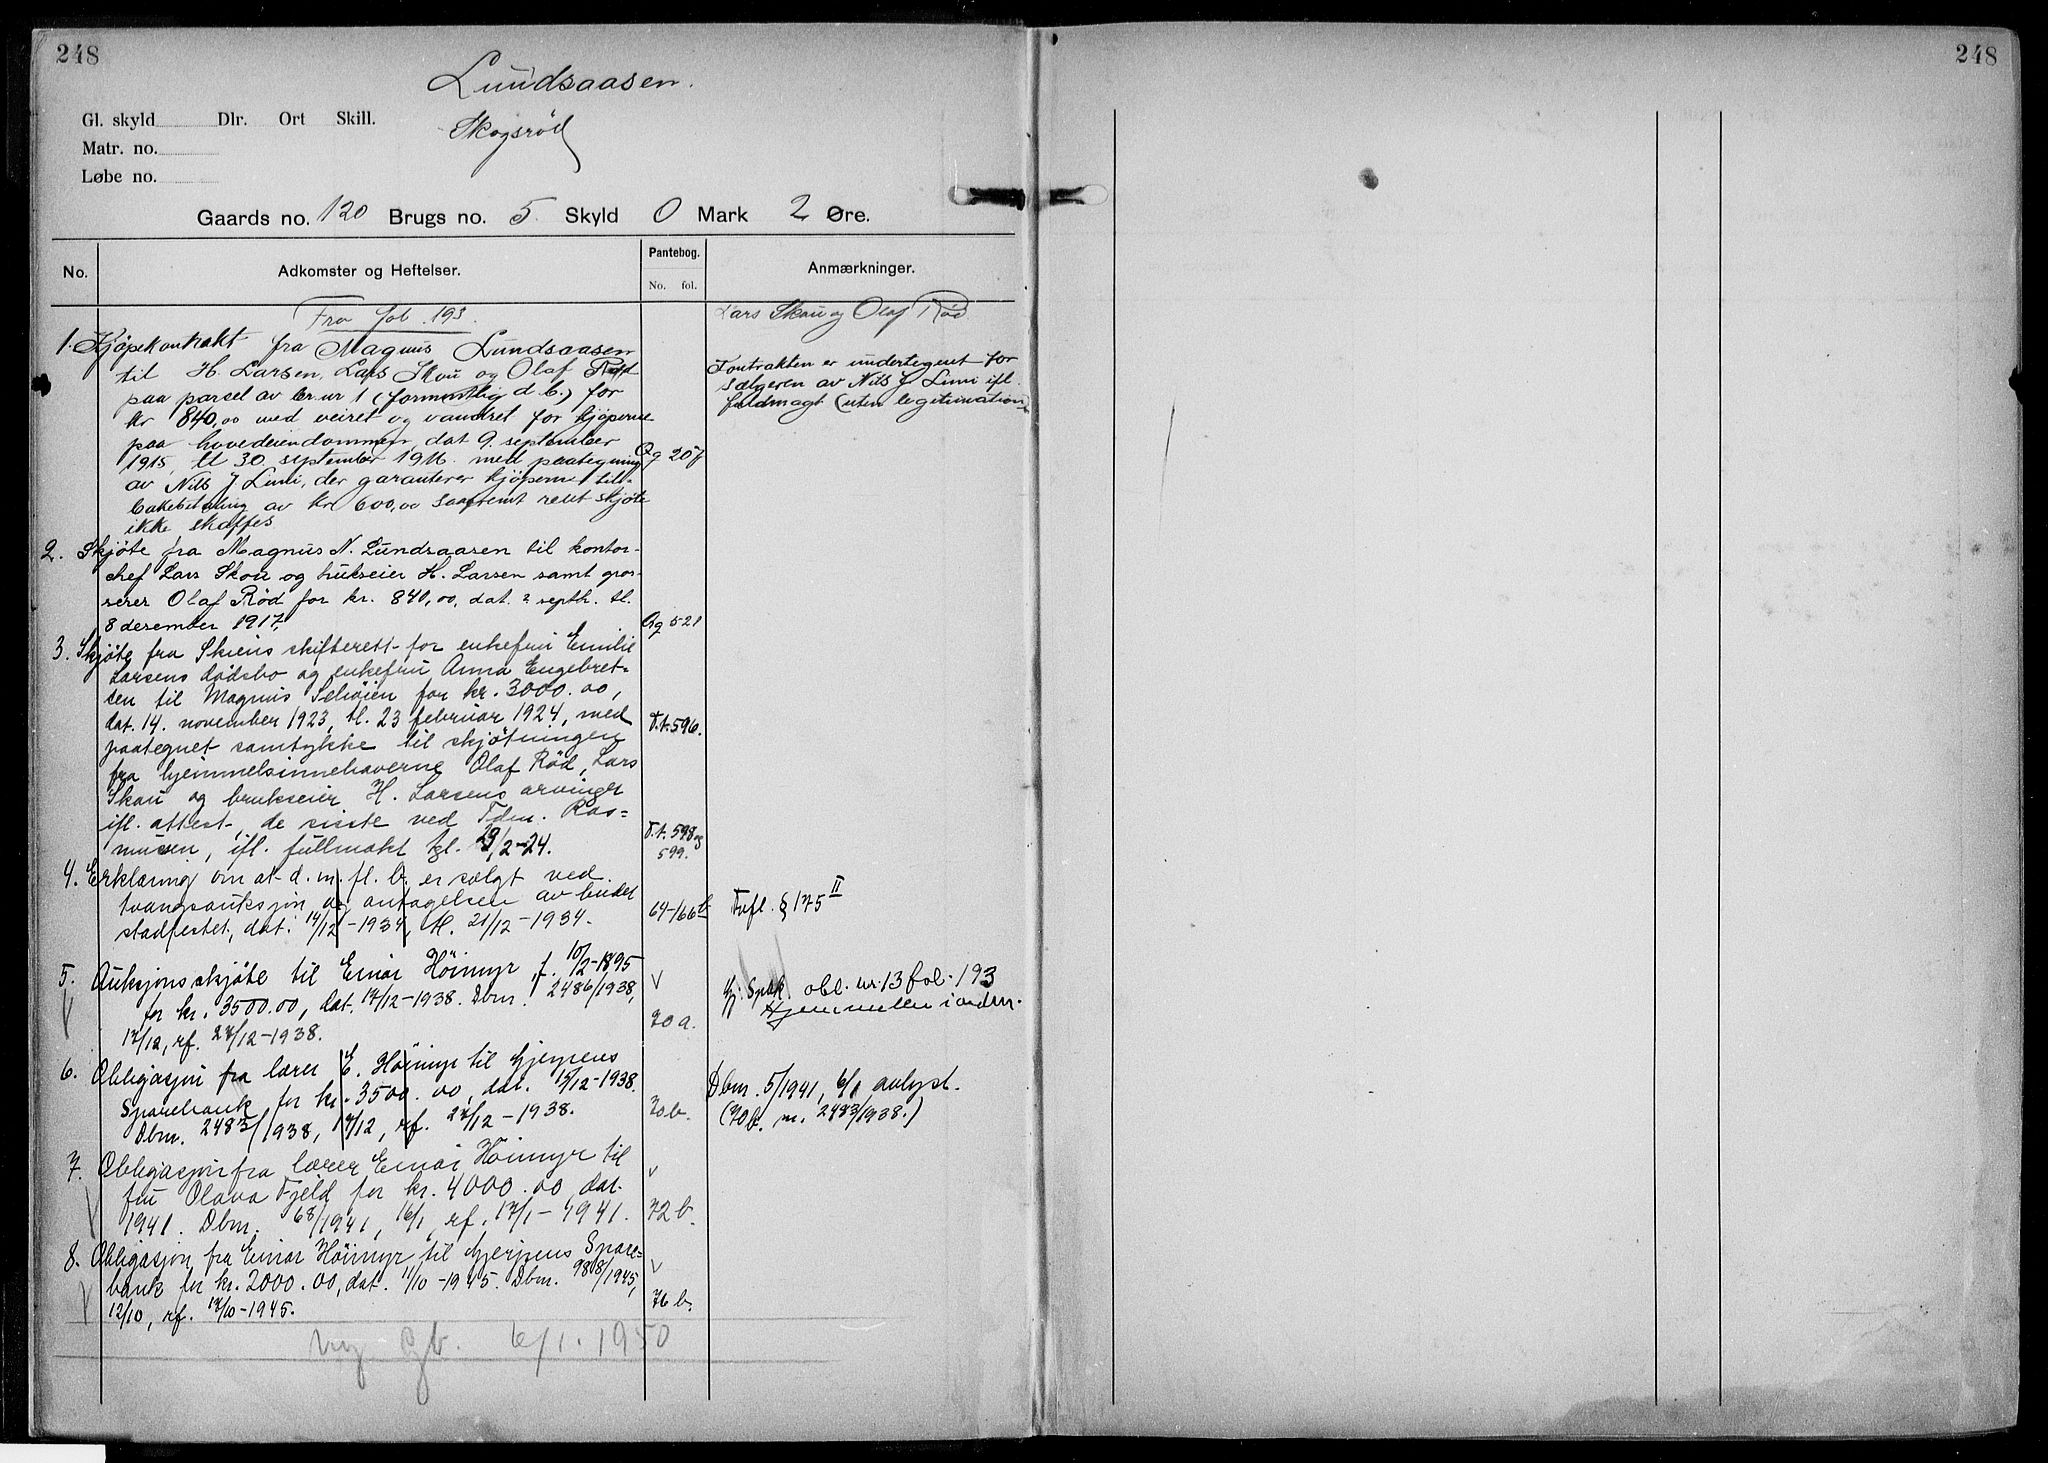 248
248
Lundsaasen.
Skogsrød
Gl. skyld Dlr. Ort Skill.
Matr. no.
Løbe no.
Gaards no. 120 Brugs no. 5 Skyld 0 Mark 2 Øre.
No. Adkomster og Heftelser. Pantebog. No. fol. Anmærkninger.
Fra fol. 193.
Lars Skau og Olaf Rød
1. Kjøpekontrakt fra Magnus Lundsaasen
til H. Larsen, Lars Skou og Olaf Rød
paa parsel av br.nr 1 (formentlig d b.) for
kr 840,00 med veiret og vandret for kjøperne
paa hovedeiendommen, dat 9. september
1915, tl 30. september 1916. med paategning Qg 207
av Nils J Limi, der garanterer kjøperne til-
bakebetaling av kr 600,00 saafremt rett skjøte
ikke skaffes
Kontrakten er undertegnet for
sælgeren av Nils J Limi ifl.
fuldmagt (uten legitimation)
2. Skjøte fra Magnus N. Lundsaasen til kontor-
chef Lars Skou og brukseier H. Larsen samt gros-
serer Olaf Rød for kr. 840,00, dat. 2 septb. tl.
8 desember 1917, Qg 521
3. Skjøte fra Skiens skifterett for enkefru Emilie
Larsens dødsbo og enkefru Anna Engebret-
sen til Magnus for kr. 3000.00,
dat. 14. november 1923, tl. 23 februar 1924, med T.t. 596.
paategnet samtykke til skjøtningen
fra hjemmelsinnehaverne Olaf Rød, Lars
Skou og brukseier H. Larsens arvinger
ifl. attest, de siste ved Tdm. Ras-
mussen, ifl. fullmakt tgl. 23/2-24. T.t. 598 og
599.
4. Erklæring om at d. m. fl. b. er sælgt ved
tvangsauksjon og antagelsen av budet 64-66 b Tvfl. § 175 II
stadfestet, dat. 14/12-1934, tl. 21/12-1934.
5. Auksjonsskjøte til Einar Höimyr, f. 10/2-1895 v
for kr. 3500.00, dat. 17/12-1938. Dbm. 2486/1938,
17/12, rf. 27/12-1938. 70 a.
Gj. Spbk. obl. nr. 13 fol. 193
Hjemmelen i orden.
6. Obligasjon fra lærer E. Höimyr til Gjerpens
Sparebank for kr. 3500.00, dat. 15/12-1938.
Dbm. 2483/1938, 17/12, rf. 27/12-1938. 70 b.
Dbm. 5/1941, 6/1 avlyst.
(70 b. nr. 2483/1938.)
7. Obligasjon fra lærer Einar Höimyr til v
fru Olava Fjeld for kr. 4000.00, dat.
1941. Dbm. 68/1941, 16/1, rf. 17/1-1941. 72 b.
8. Obligasjon fra Einar Höimyr til Gjerpens Spare- v
bank for kr. 2000.00, dat. 11/10-1945. Dbm. 988/1945,
12/10, rf. 17/10-1945. 76 b.
Ny Gb. 6/1. 1950